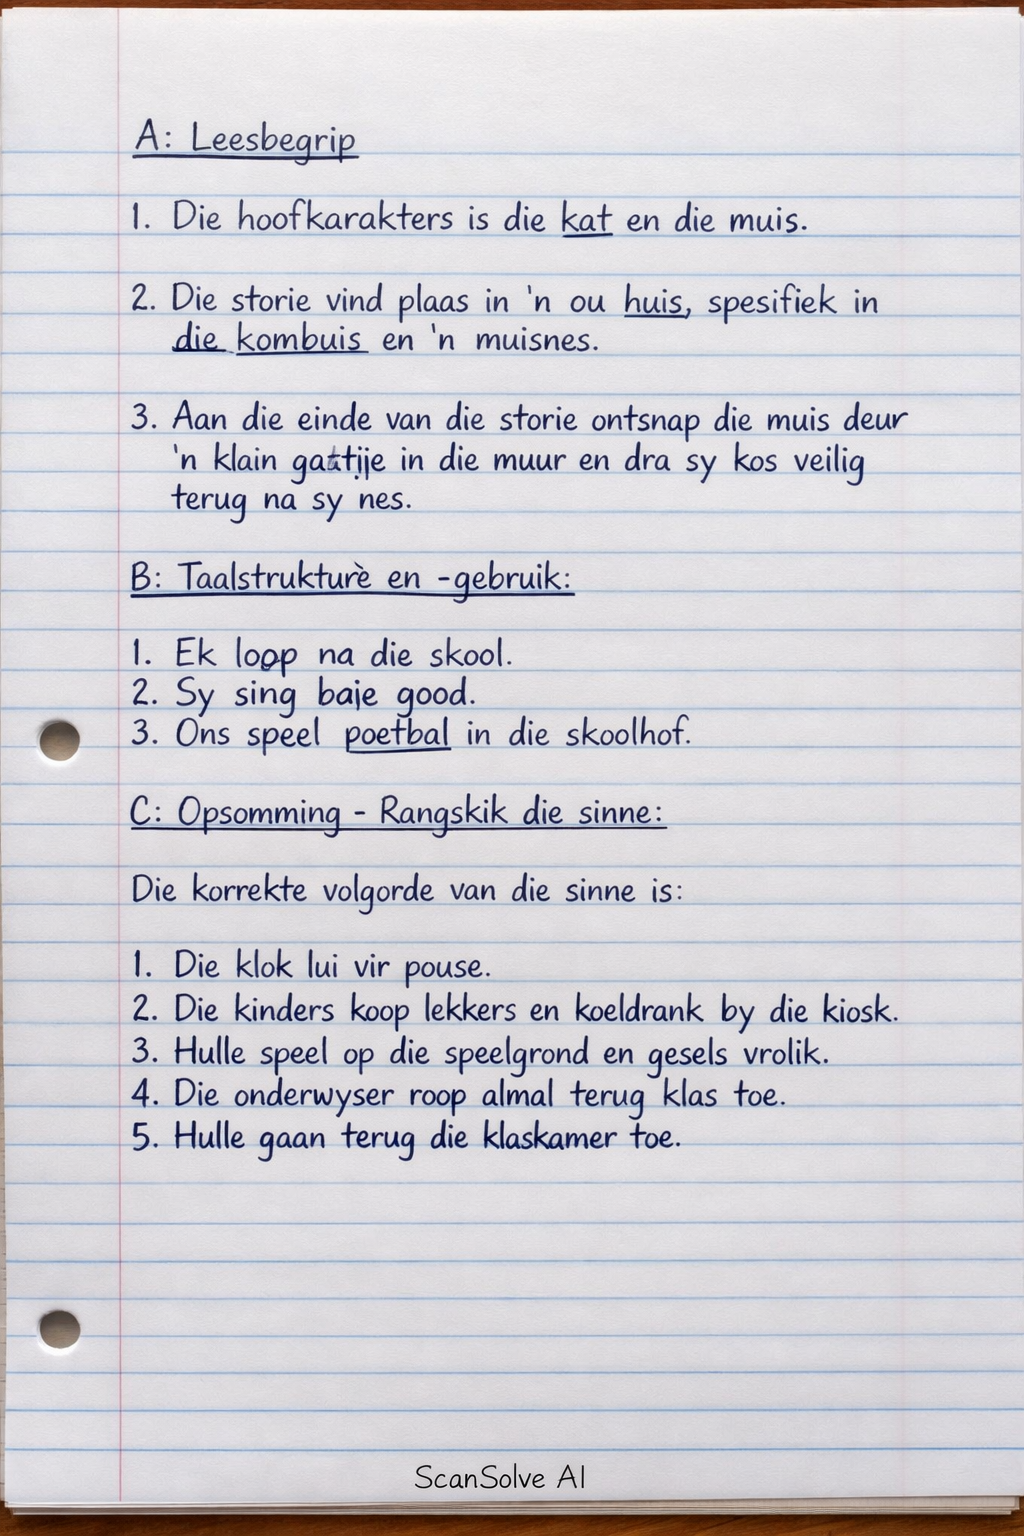 A: Leesbegrip
1. Die hoofkarakters is die kat en die muis.
2. Die storie vind plaas in 'n ou huis, spesifiek in
die kombuis en 'n muisnes.
3. Aan die einde van die storie ontsnap die muis deur
'n klain in die muur en dra sy kos veilig
terug na sy nes.
B: Taalstrukturè en -gebruik:
1. Ek loop na die skool.
2. Sy sing baie good.
3. Ons speel poetbal in die skoolhof.
C: Opsomming - Rangskik die sinne:
Die korrekte volgorde van die sinne is:
1. Die klok lui vir pouse.
2. Die kinders koop lekkers en koeldrank by die kiosk.
3. Hulle speel op die speelgrond en gesels vrolik.
4. Die onderwyser roop almal terug klas toe.
5. Hulle gaan terug die klaskamer toe.
ScanSolve AI